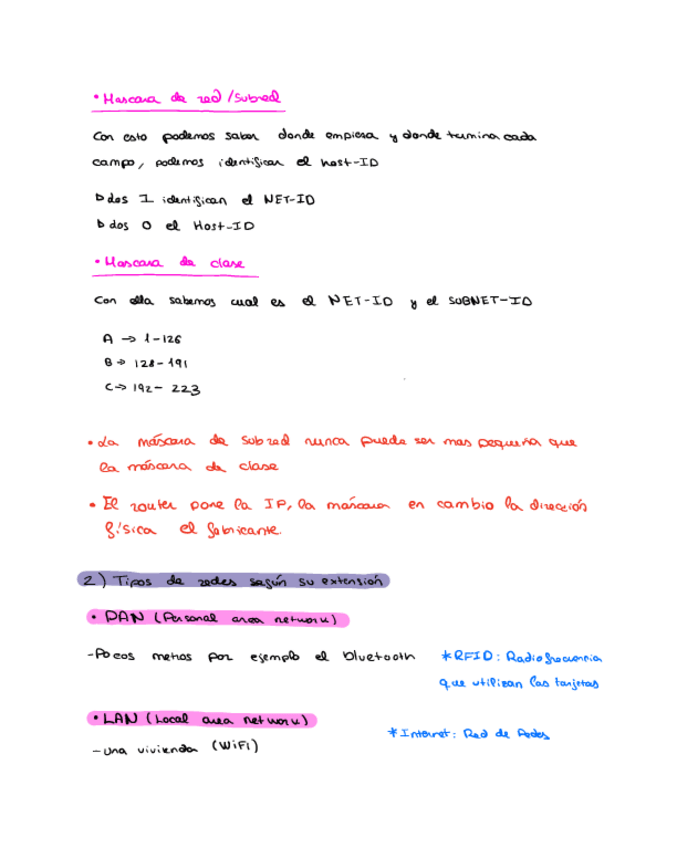 • Mascara de red/Subred
Con esto podemos saber donde empiesa y donde termina cada
campo, podemos identifican el host-ID
▷ dos 1 identifican el NET-ID
▷ dos 0 el Host-ID
• Mascara de clase
Con ella sabemos cual es el NET-ID y el SUBNET-ID
A → 1-126
B → 128-191
C → 192-223
• La máscara de subred nunca puede ser mas pequeña que
la máscara de clase
• El router pone la IP, la máscara en cambio la dirección
física el fabricante.
2) Tipos de redes según su extensión
• PAN (Personal area network)
-Pocos metros por ejemplo el bluetooth
*RFID: Radiofrecuencia
que utilizan las tarjetas
• LAN (Local area network)
*Internet: Red de Redes
-una vivienda (WiFi)